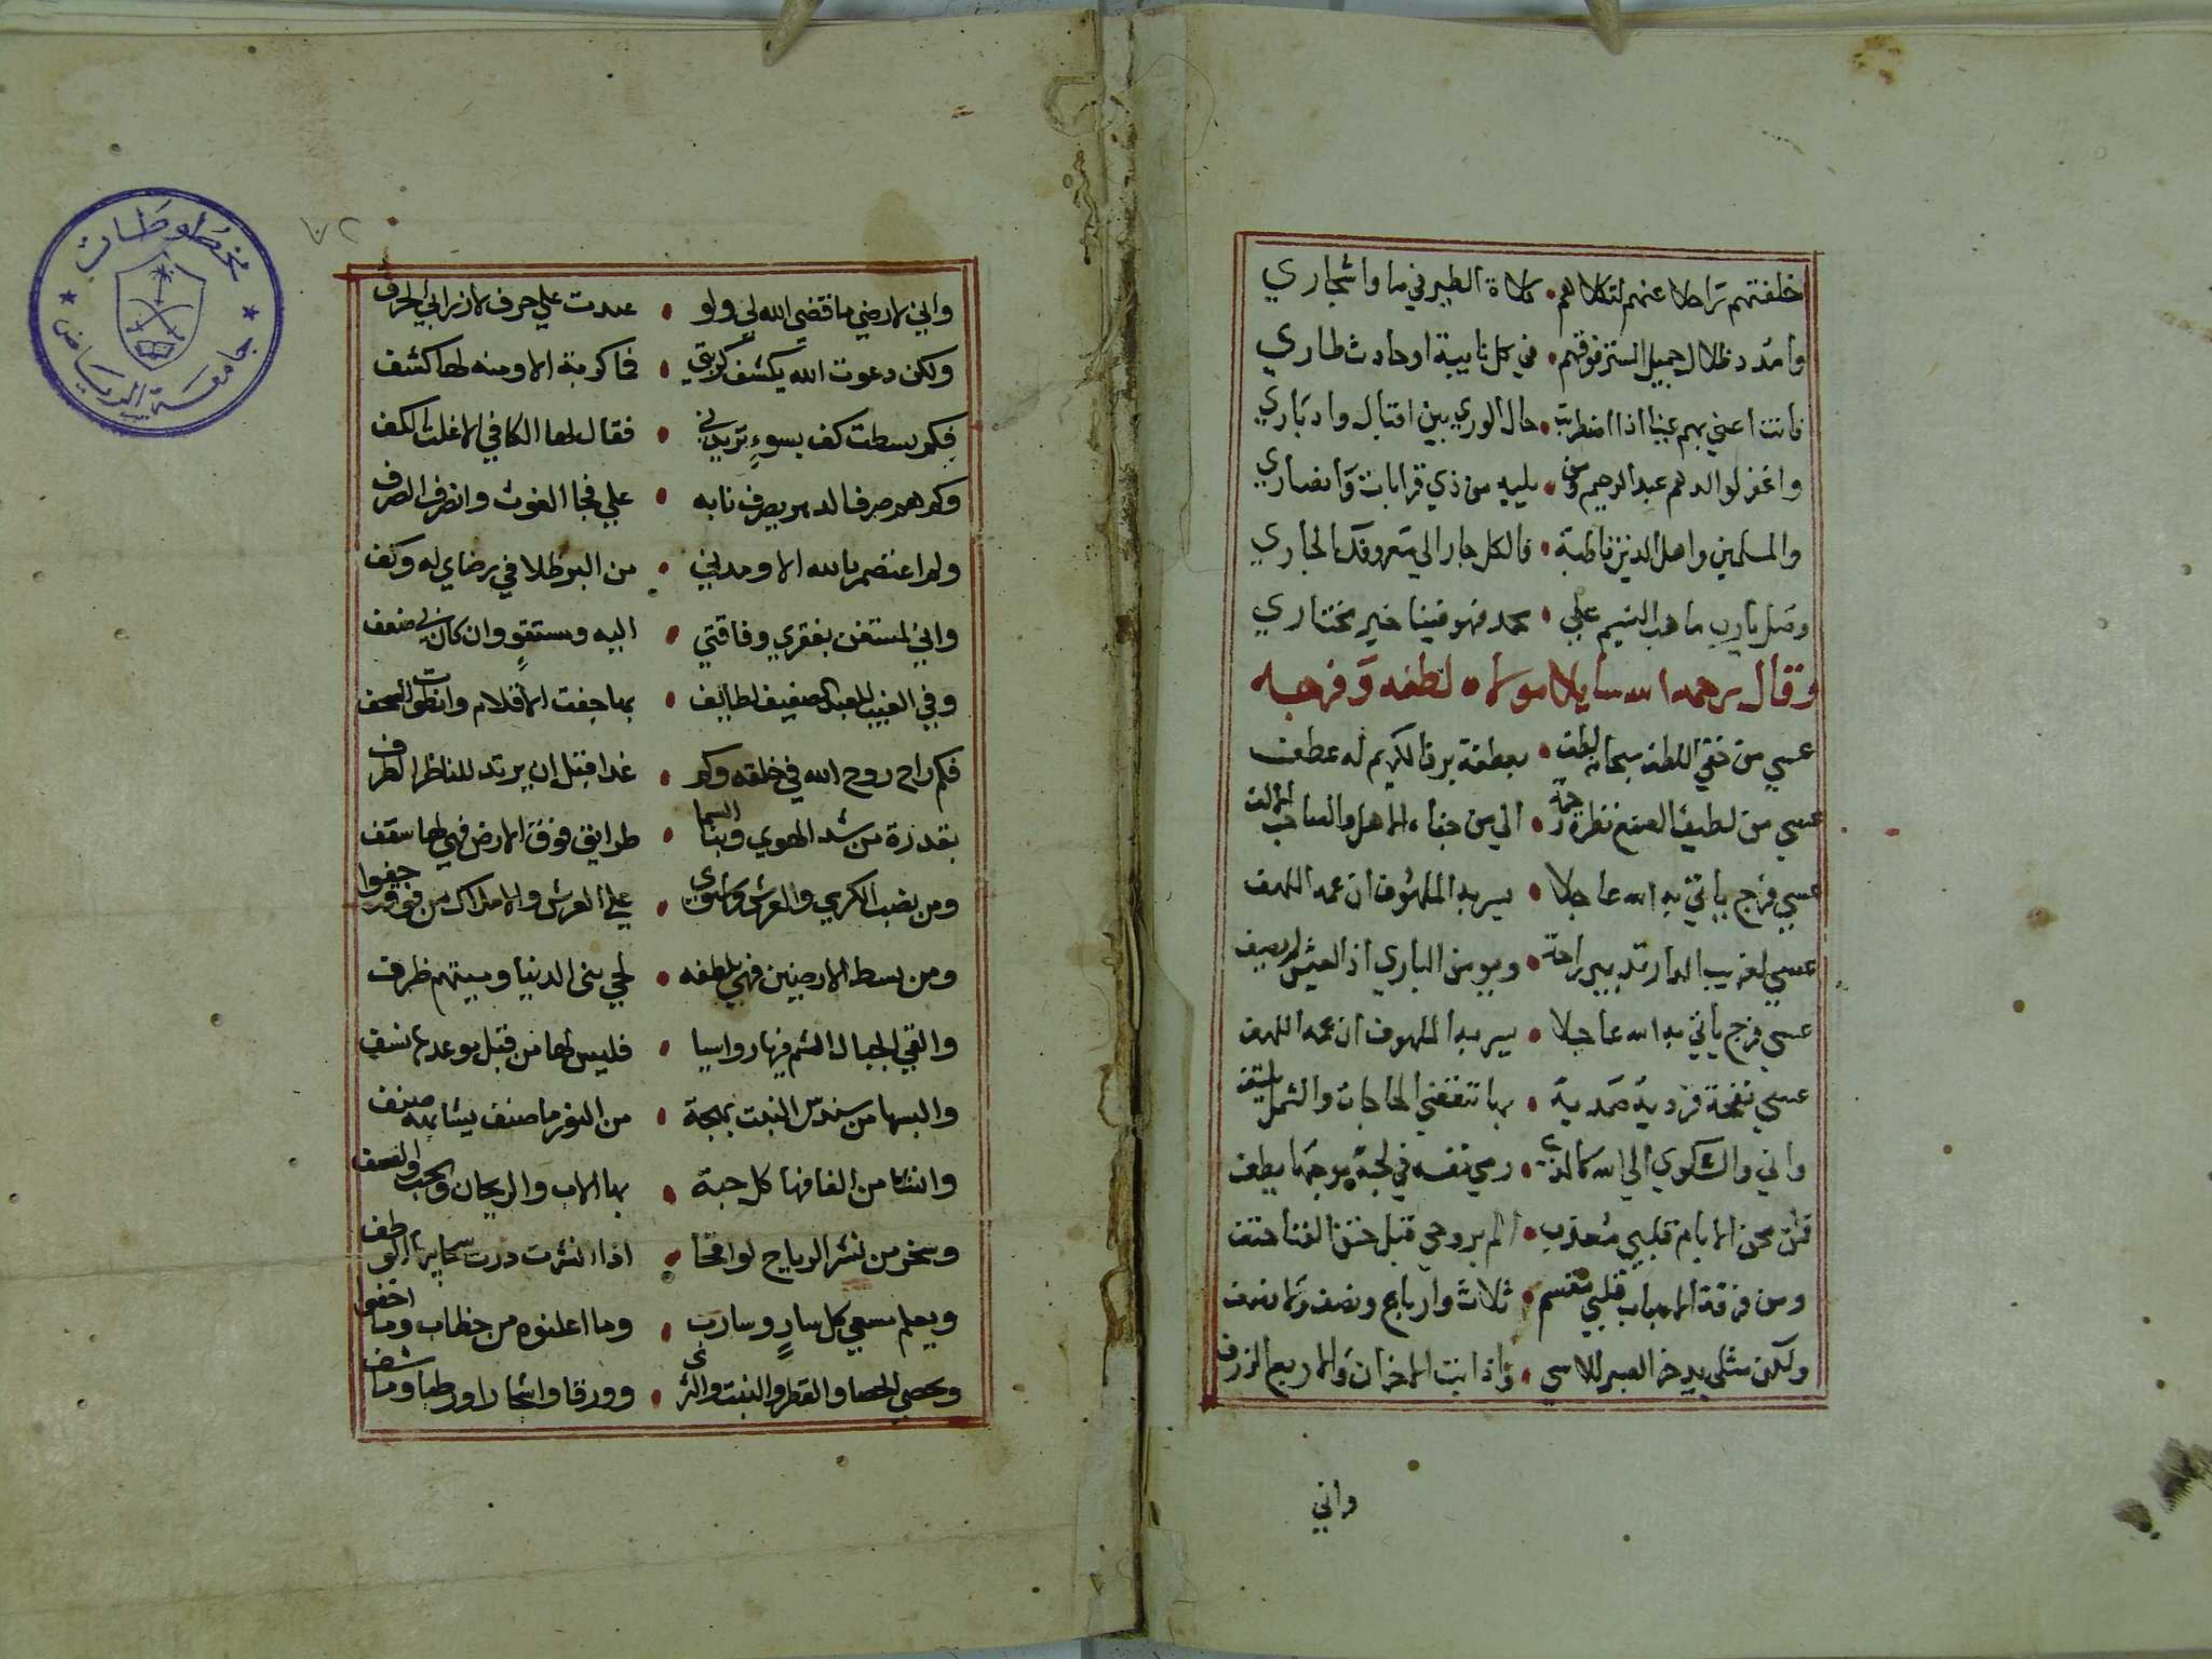 خلفتهم تراحلا عنهم لتكلاهم • كلاة الطير في ما واشجاري
وامدد ظلال جميل الستر فوقهم • في كل نايبة او حادث طاري
فانت اعني بهم عنيا اذا اضطربت • حال الوري بين اقبال وادباري
واغفر لوالدهم عبد الرحيم ومن • يليه من ذي قرابات وانصاري
والمسلمين واهل الدين قاطبة • فالكل جار الي معروفك الجاري
وصل يا رب ما هب النسيم علي • محمد فهو فينا خير مختاري
وقال رحمه الله سايلا مولاه لطفه وفرجه
عسي من خفي اللطف سبحانه لطف • بعطفة بر فالكريم له عطف
عسي من لطيف الصنع نظرة رحمة • الي من جفاه الاهل والصاحب الالف
عسي فرج ياتي به الله عاجلا • يسر به الملهوف ان عمه اللهف
عسي لغريب الدار تدبير راحة • وبر من الباري اذا العيش لم يصف
عسي فرج ياتي به الله عاجلا • يسر به الملهوف ان عمه اللهف
عسي نفحة فردية صمدية • بها تنقضي الحاجات والشمل يلتف
واني والشكوي الي الله كالذي • رمي نفسه في لجة موجها يطف
فمن محن الايام قلبي معذب • الم بروحي قبل حتف الفنا حتف
ومن فرقة الاحباب قلبي مقسم • ثلاث وارباع ونصف ولا نصف
ولكن مثلي يدخر الصبر للاسي • واذا بنت الاحزان والاربع الزرف
واني
٧٢
واني لارضي ما قضي الله لي ولو • عبدت علي حرف لازرابي الحرف
ولكن دعوت الله يكشف كربتي • فما كربة الا ومنه لها كشف
فكم بسطت كف بسوء تريدني • فقال لها الكافي الا غلت الكف
وكم هم صرف الدهر يصرف نابه • علي فجا الغوث وانصرف الصرف
ولم اعتصم بالله الا ومدني • من البر ظلا في رضاي له وكف
واني لمستغن بفقري وفاقتي • اليه ومستقو وان كان لي ضعف
وفي الغيب للعبد الضعيف لطايف • بها جفت الاقلام وانطوت الصحف
فكم راح روح الله في خلقه وكم • غدا قبل ان يرتد للناظر الطرف
بقدرة من شد الهوي وبنا السما • طرايق فوق الارض فهي لها سقف
ومن نصب الكرسي والعرش واستوي • علي العرش والاملاك من فوقه حفوا
ومن بسط الارضين فهي بلطفه • لحي بني الدنيا وميتهم ظرف
والقي الجبال الشم فيها رواسيا • فليس لها من قبل موعدها نسف
والبسها من سندس النبت بهجة • من النور ما صنف يشابهه صنف
وانشا من الفافها كل حبة • بها الاب والريحان والحب والعصف
وسخر من نشر الرياح لواقحا • اذا انشرت درت سحايبها الوطف
ويعلم مسعي كل سار وسارب • وما اعلنوه من خطاب وما اخفي
ويحصي الحصا والقطر والنبت والثري • وورقا واشجارا ورطبا وما شف
مخطوطات
جامعة الرياض